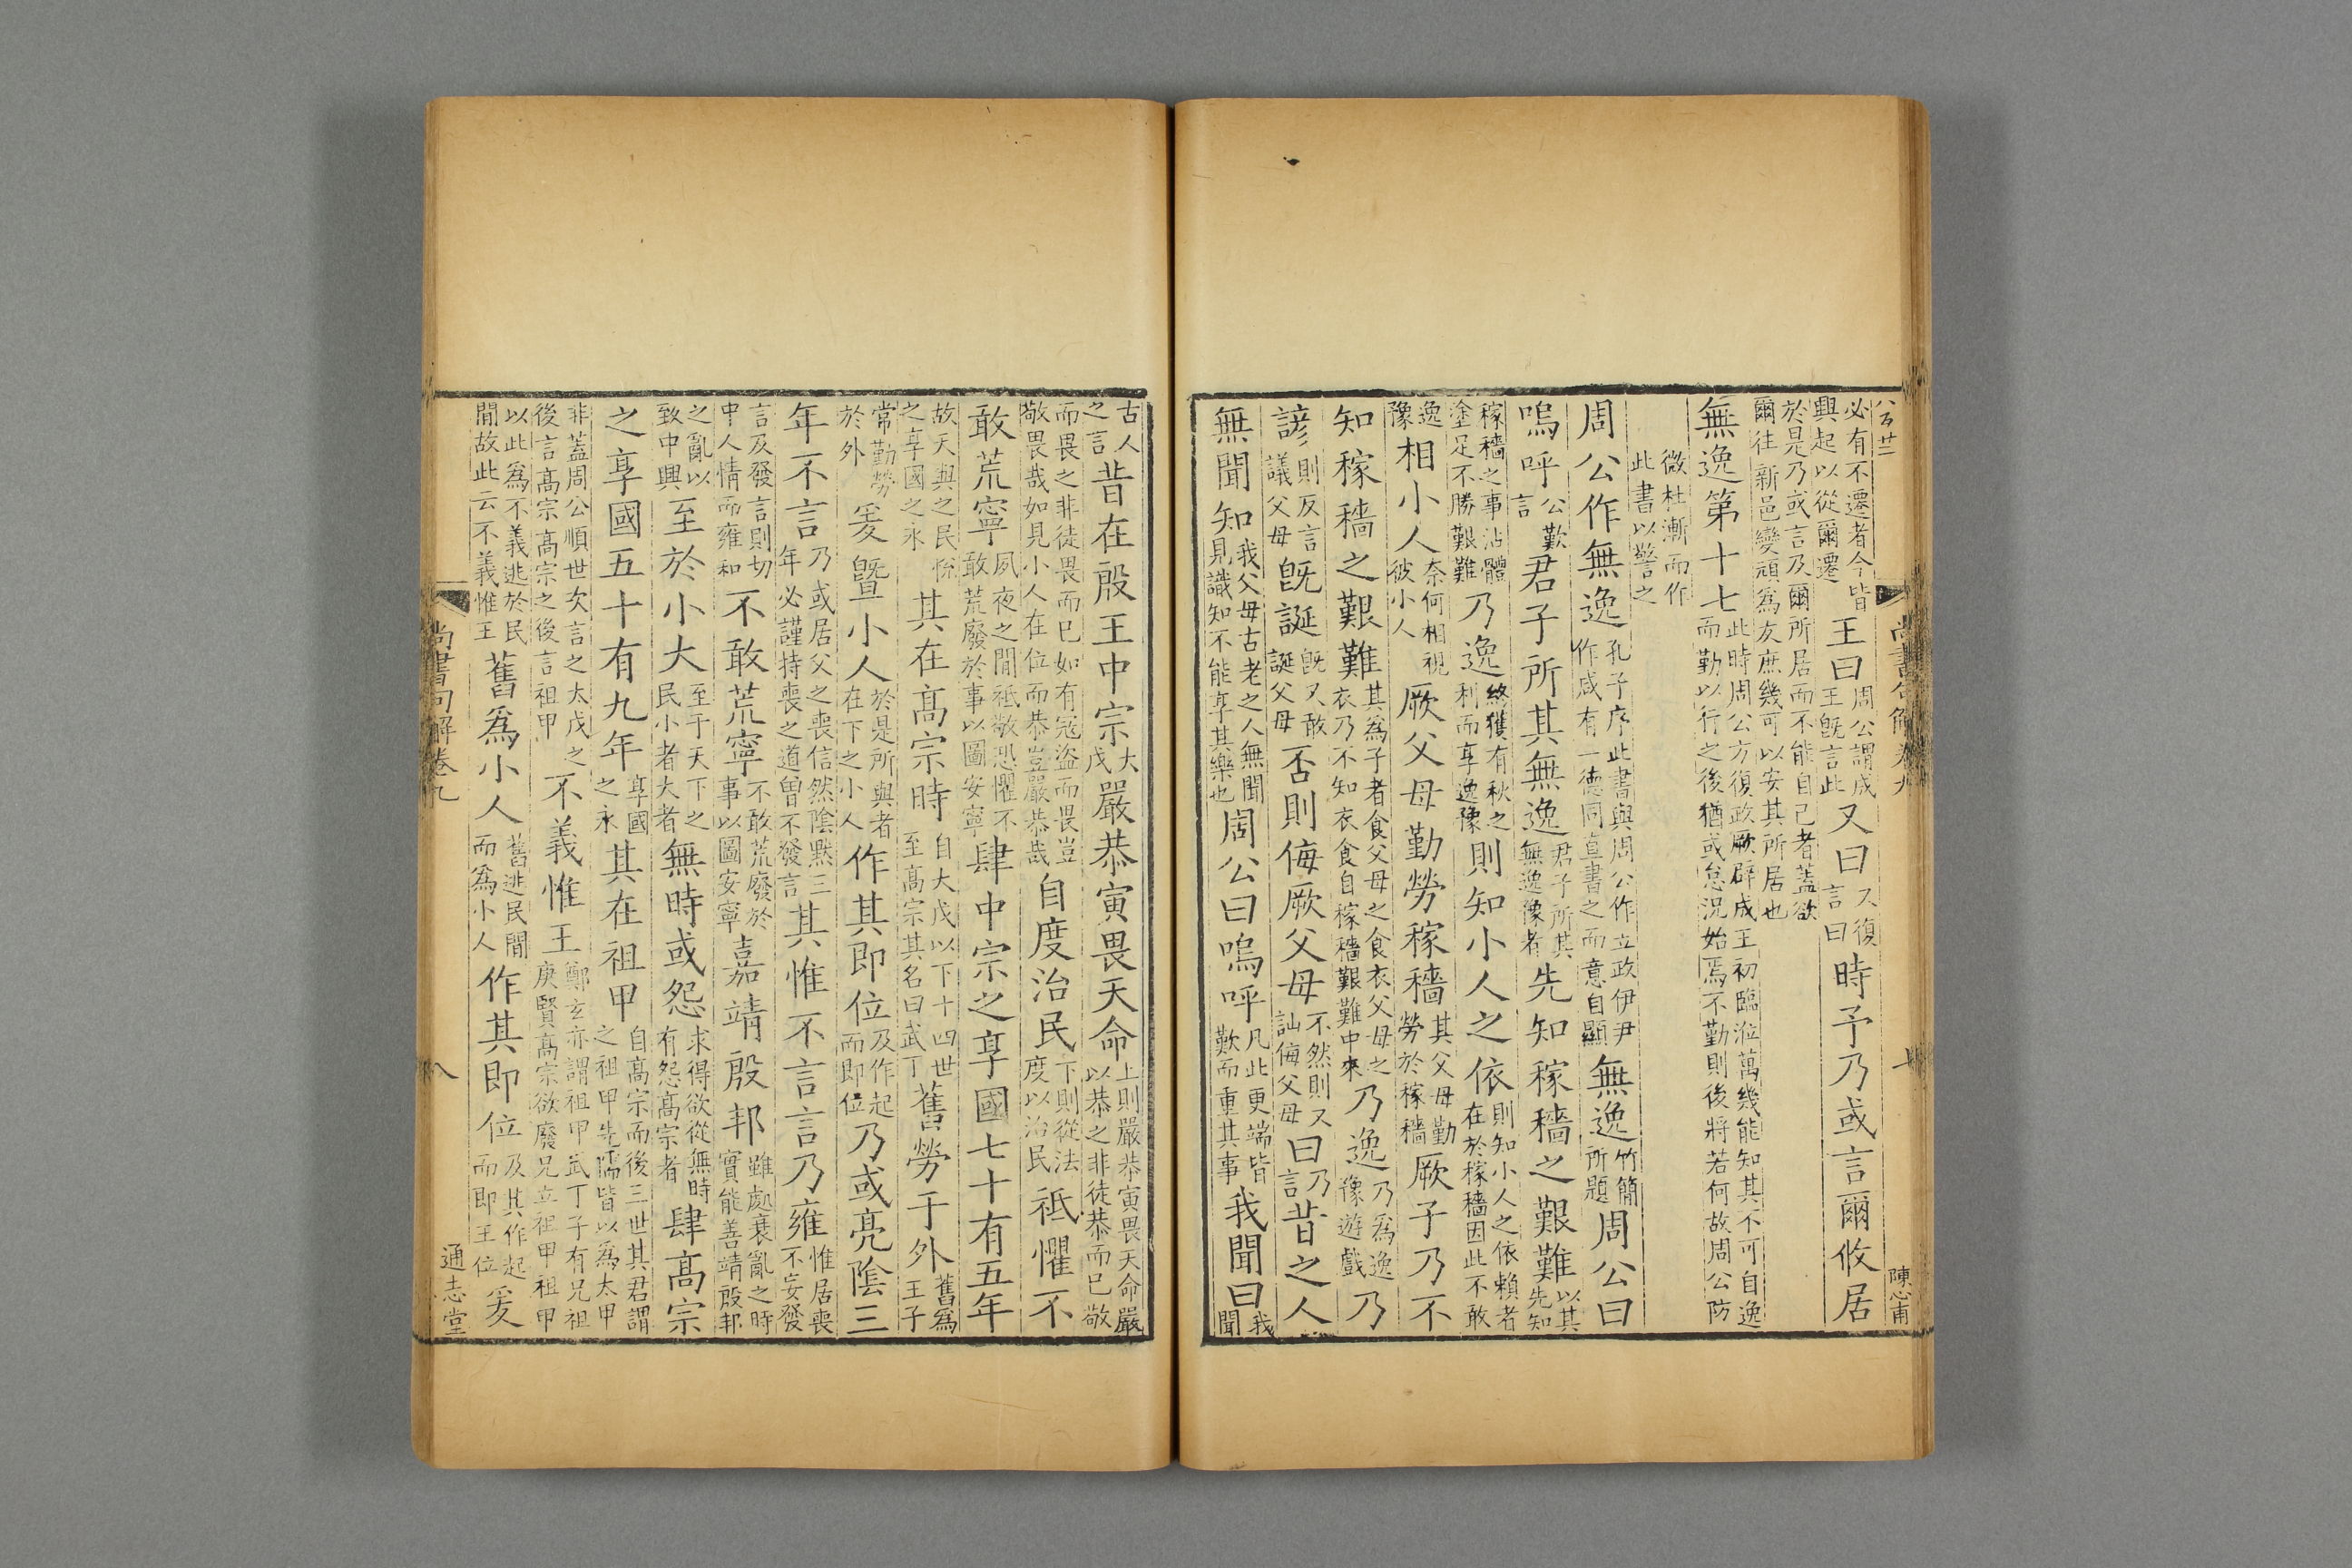 必有不遷者今皆興起以從爾遷王曰周公謂成王既言此又曰又復言曰時予乃或言爾攸居
於是乃或言及爾所居而不能自己者蓋欲爾往新邑變頑爲友庶幾可以安其所居也
無逸第十七此時周公方復政厥辟成王初臨涖萬幾能知其不可自逸而勤以行之後猶或怠況始焉不勤則後將若何故周公防
微杜漸而作此書以警之
周公作無逸孔子序此書與周公作立政伊尹作咸有一德同直書之而意自顯無逸竹簡所題周公曰
嗚呼公歎言君子所其無逸君子所其無逸豫者先知稼穡之艱難先知以其
稼穡之事沾體塗足不勝艱難乃逸終獲有秋之利而享逸豫則知小人之依則知小人之依賴者在於稼穡因此不敢
逸豫相小人奈何相視彼小人厥父母勤勞稼穡其父母勤勞於稼穡厥子乃不
知稼穡之艱難其爲子者食父母之食衣父母之衣乃不知衣食自稼穡艱難中來乃逸乃爲逸豫遊戲乃
諺則反言議父母既誕既又敢誕父母否則侮厥父母不然則又訕侮父母曰乃言昔之人
無聞知我父母古老之人無聞見識知不能享其樂也周公曰嗚呼凡此更端皆歎而重其事我聞曰我聞
尚書句解卷九
陳悳甫
古人之言昔在殷王中宗大戊嚴恭寅畏天命上則嚴恭寅畏天命嚴以恭之非徒恭而已敬
而畏之非徒畏而已如有冠盜而畏豈敬畏哉如見小人在位而恭豈嚴恭哉自度治民下則從法度以治民祗懼不
敢荒寧夙夜之間祗敬恐懼不敢荒廢於事以圖安寧肆中宗之享國七十有五年
故天與之民依之享國之永其在高宗時自大戊以下十四世至高宗其名曰武丁舊勞于外舊爲王子
常勤勞於外爰暨小人於是所與者在下之小人作其即位及作起而即位乃或亮陰三
年不言乃或居父之喪信然陰默三年必謹持喪之道曾不發言其惟不言言乃雍惟居喪不妄發
言及發言則切中人情而雍和不敢荒寧不敢荒廢於事以圖安寧嘉靖殷邦雖處衰亂之時實能善靖殷邦
之亂以致中興至於小大至于天下之民小者大者無時或怨求得欲從無時有怨高宗者肆高宗
之享國五十有九年享國之永其在祖甲自高宗而後三世其君謂之祖甲先儒皆以爲太甲
非蓋周公順世次言之太戊之後言高宗高宗之後言祖甲不義惟王鄭玄亦謂祖甲武丁子有兄祖庚賢高宗欲廢兄立祖甲祖甲
以此爲不義逃於民間故此云不義惟王舊爲小人舊逃民間而爲小人作其即位及其作起而即王位爰
尚書句解卷九
八
通志堂